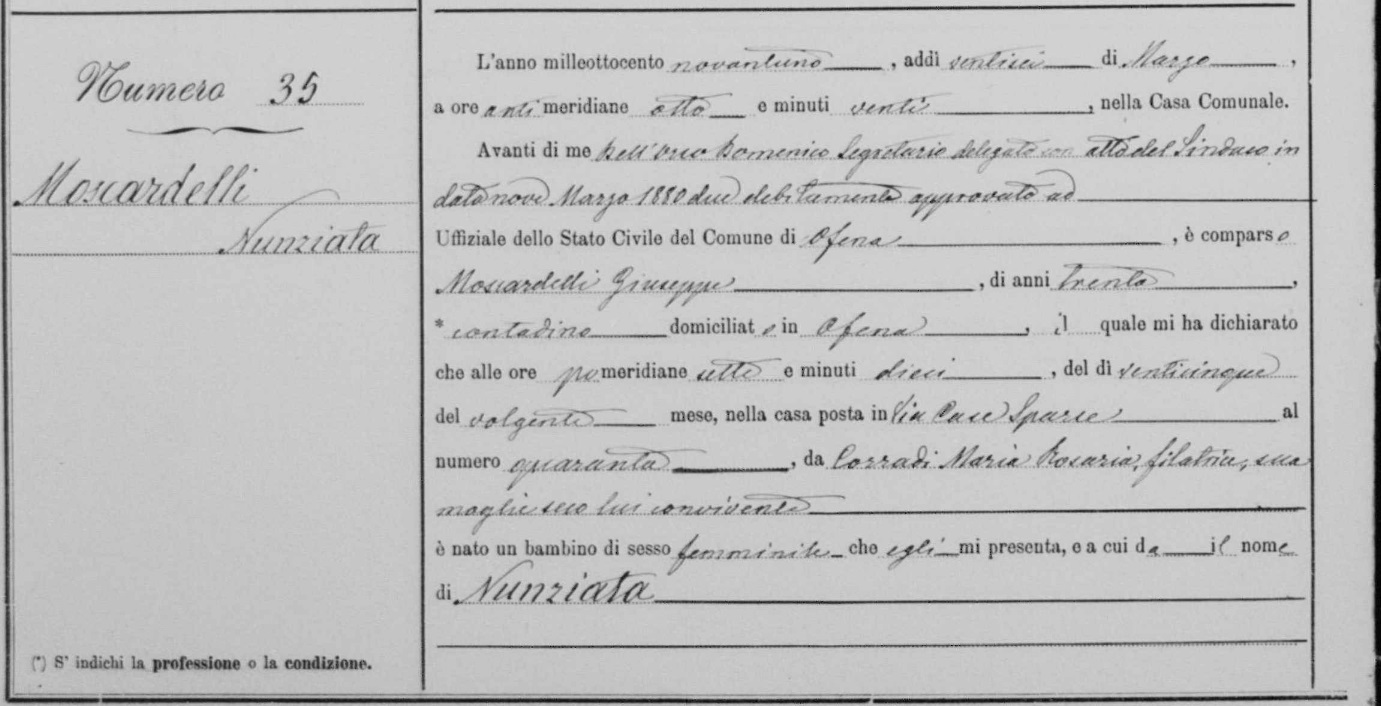 Numero 35
Moscardelli
Nunziata
(*) S' indichi la professione o la condizione.
L'anno milleottocento novantuno, addì ventisei di Marzo,
a ore anti meridiane otto e minuti venti, nella Casa Comunale.
Avanti di me Dell'Orso Domenico Segretario delegato con atto del Sindaco in
data nove Marzo 1880 due debitamente approvato ad
Uffiziale dello Stato Civile del Comune di Ofena, è comparso
Moscardelli Giuseppe, di anni trenta,
* contadino domiciliato in Ofena, il quale mi ha dichiarato
che alle ore pomeridiane sette e minuti dieci, del dì venticinque
del volgente mese, nella casa posta in Via Case Sparse al
numero quaranta, da Corradi Maria Rosaria, filatrice, sua
moglie seco lui convivente
è nato un bambino di sesso femminile che egli mi presenta, e a cui da il nome
di Nunziata